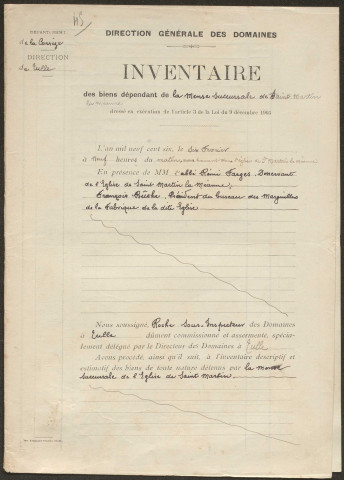 DÉPARTEMENT
de la Corrèze
DIRECTION
de Tulle
115
DIRECTION GÉNÉRALE DES DOMAINES
INVENTAIRE
des biens dépendant de la mense succursale de Saint Martin
la Meanne
dressé en exécution de l'article 3 de la Loi du 9 décembre 1905
L'an mil neuf cent six, le six Février
à neuf heures du matin
En présence de MM. l'abbé Rémi Farges, Desservant
de l'Eglise de Saint Martin la Meanne,
François , Président du bureau des Marguilliers
de la Fabrique de la dite Eglise
Nous soussigné, Roche Sous-Inspecteur des Domaines
à Tulle dûment commissionné et assermenté, spécia-
lement délégué par le Directeur des Domaines à Tulle
Avons procédé, ainsi qu'il suit, à l'inventaire descriptif et
estimatif des biens de toute nature détenus par la mense
succursale de l'Eglise de Saint Martin.